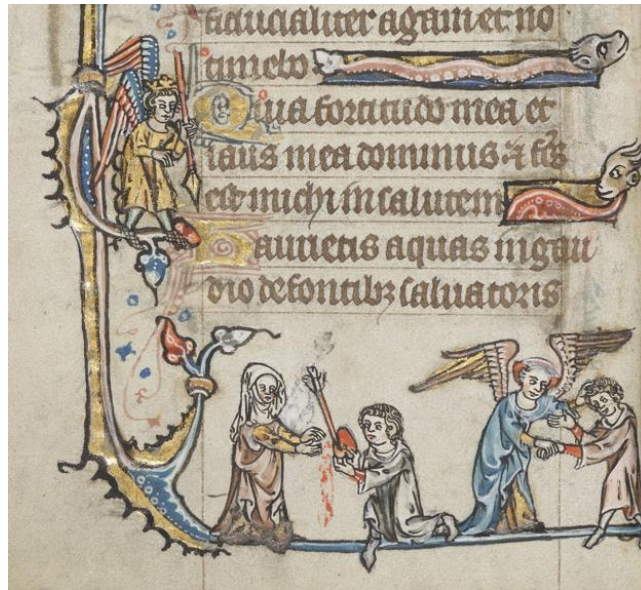 fiducialiter agam et no
timebo
Quia fortitudo mea et
laus mea dominus · ⁊ fc̄s
est michi in salutem
Haurietis aquas in gau
dio de fontibꝫ saluatoris